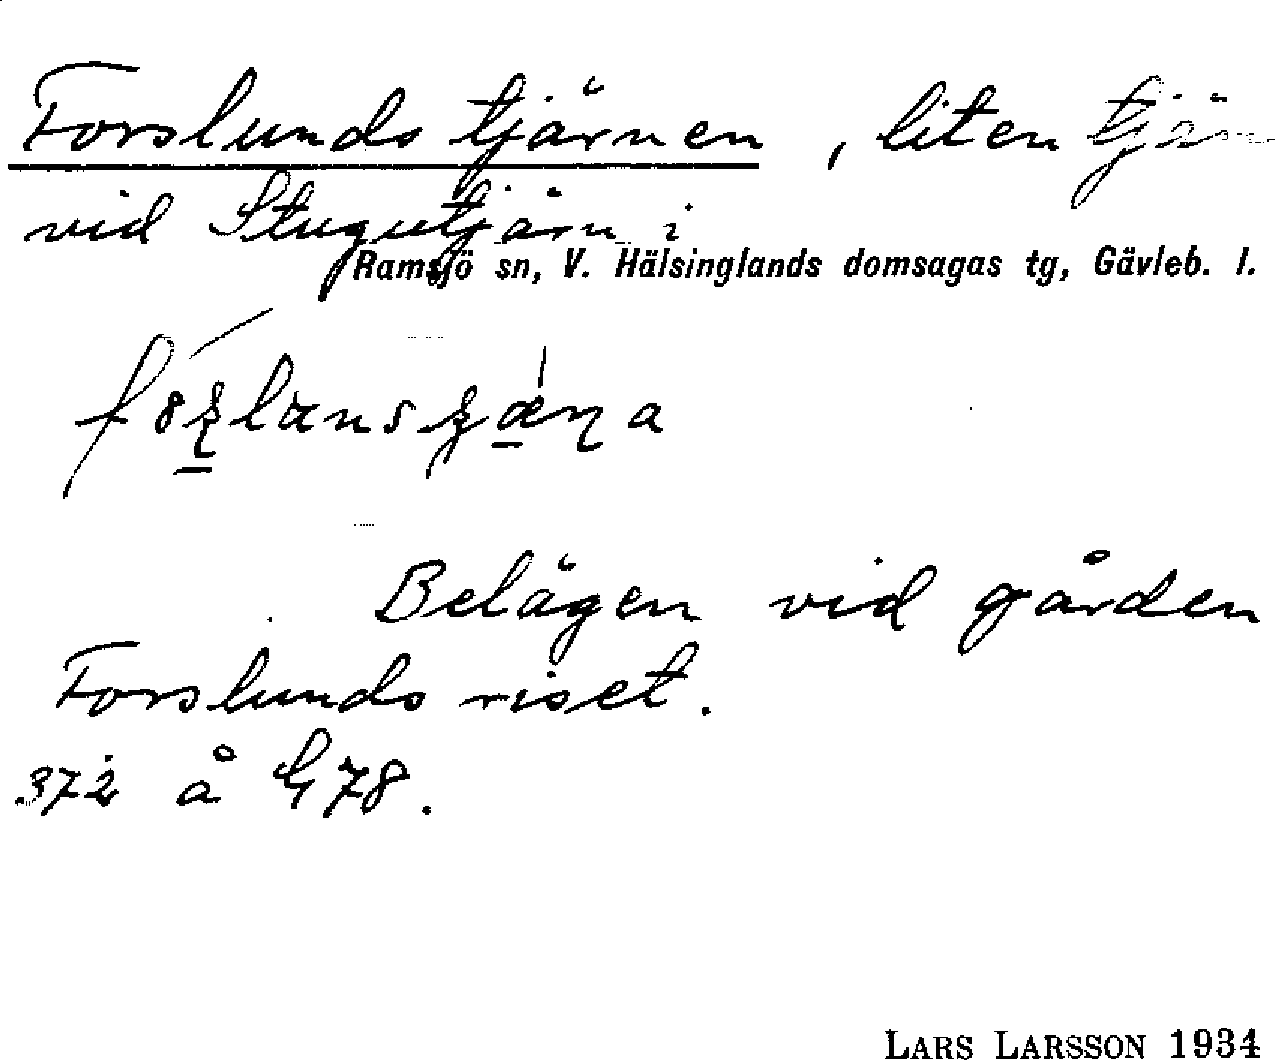 Forslundstjärnen, liten tjärn
vid Stugutjärn i
Ramsjö sn, V. Hälsinglands domsagas tg, Gävleb. l.
Belägen vid gården
Forslundsriset.
372 å G 78.
LARS LARSSON 1934